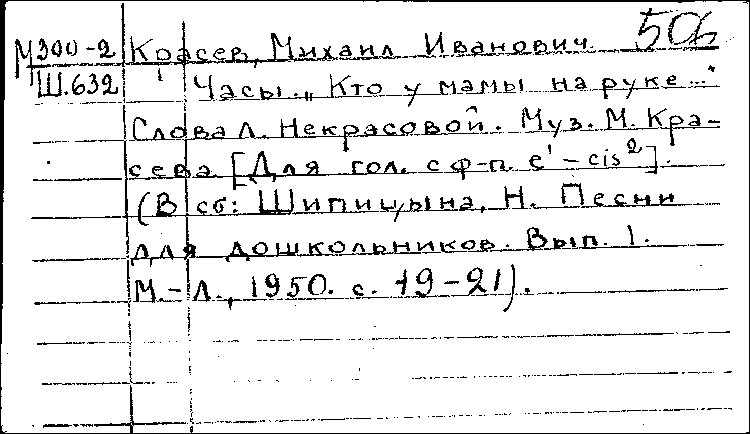 М300-2 Красев, Михаил Иванович. 50б
Ш.632 Часы. „Кто у мамы на руке..."
Слова Л. Некрасовой. Муз. М. Кра-
сева. [Для гол. с ф-п. e¹-cis²].
(В сб: Шипицына, Н. Песни
для дошкольников. Вып. 1.
М.-Л., 1950. с. 19-21).